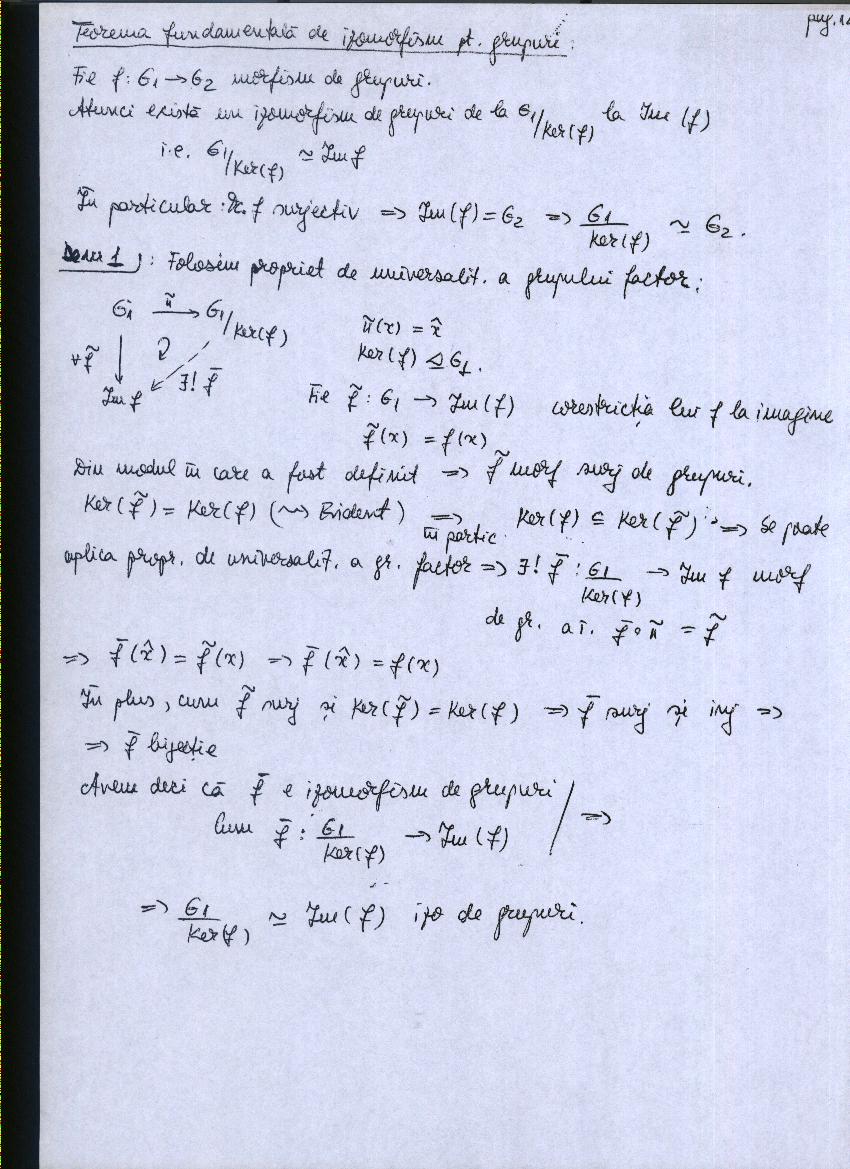 pag. 1
Teorema fundamentală de izomorfism pt. grupuri:
Fie f: G1 → G2 morfism de grupuri.
Atunci există un izomorfism de grupuri de la G1/Ker(f) la Im(f)
i.e. G1/Ker(f) ≃ Im f
În particular: f surjectiv ⇒ Im(f) = G2 ⇒ G1/Ker(f) ≃ G2.
Dem 1: Folosim propriet de universalit. a grupului factor:
G1 →π̃ G1/Ker(f)
π̃(x) = x̂
Ker(f) ⊴ G1.
∀ f̃ ∃! f̄
Im f
Fie f̃: G1 → Im(f) corestricția lui f la imagine
f̃(x) = f(x)
Din modul în care a fost definit ⇒ f̃ morf surj de grupuri.
Ker(f̃) = Ker(f) (⇝ Evident) ⇒ în partic. Ker(f) ⊆ Ker(f̃) ⇒ Se poate
aplica propr. de universalit. a gr. factor ⇒ ∃! f̄: G1/Ker(f) → Im f morf
de gr. a.î. f̄ ∘ π̃ = f̃
⇒ f̄(x̂) = f̃(x) ⇒ f̄(x̂) = f(x)
În plus, cum f̃ surj și Ker(f̃) = Ker(f) ⇒ f̄ surj și inj ⇒
⇒ f̄ bijecție
Avem deci că f̄ e izomorfism de grupuri / ⇒
Cum f̄: G1/Ker(f) → Im(f)
⇒ G1/Ker(f) ≃ Im(f) izo de grupuri.